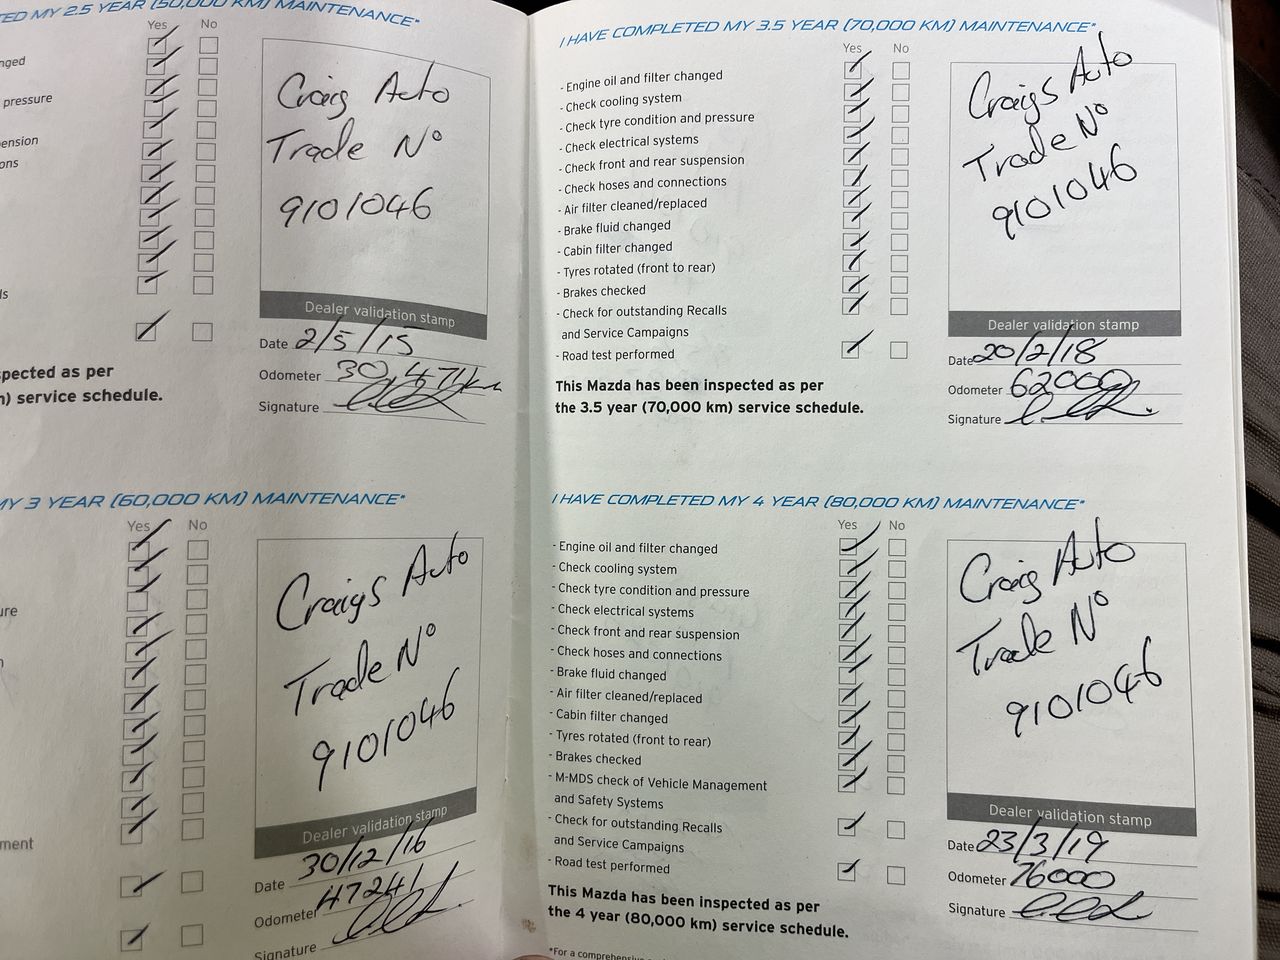 ED MY 2.5 YEAR (50,000 KM) MAINTENANCE*
Yes No
nged
pressure
ension
ons
ls
Craig Auto
Trade Nº
9101046
Dealer validation stamp
Date 2/5/15
Odometer 30,471km
Signature
pected as per
) service schedule.
MY 3 YEAR (60,000 KM) MAINTENANCE*
Yes No
ure
n
ment
Craigs Auto
Trade Nº
9101046
Dealer validation stamp
Date 30/12/16
Odometer 47241
Signature
I HAVE COMPLETED MY 3.5 YEAR (70,000 KM) MAINTENANCE*
Yes No
- Engine oil and filter changed
- Check cooling system
- Check tyre condition and pressure
- Check electrical systems
- Check front and rear suspension
- Check hoses and connections
- Air filter cleaned/replaced
- Brake fluid changed
- Cabin filter changed
- Tyres rotated (front to rear)
- Brakes checked
- Check for outstanding Recalls
and Service Campaigns
- Road test performed
This Mazda has been inspected as per
the 3.5 year (70,000 km) service schedule.
Craigs Auto
Trade Nº
9101046
Dealer validation stamp
Date 20/2/18
Odometer 62000
Signature
I HAVE COMPLETED MY 4 YEAR (80,000 KM) MAINTENANCE*
Yes No
- Engine oil and filter changed
- Check cooling system
- Check tyre condition and pressure
- Check electrical systems
- Check front and rear suspension
- Check hoses and connections
- Brake fluid changed
- Air filter cleaned/replaced
- Cabin filter changed
- Tyres rotated (front to rear)
- Brakes checked
- M-MDS check of Vehicle Management
and Safety Systems
- Check for outstanding Recalls
and Service Campaigns
- Road test performed
This Mazda has been inspected as per
the 4 year (80,000 km) service schedule.
*For a comprehensive
Craig Auto
Trade Nº
9101046
Dealer validation stamp
Date 23/3/19
Odometer 76000
Signature